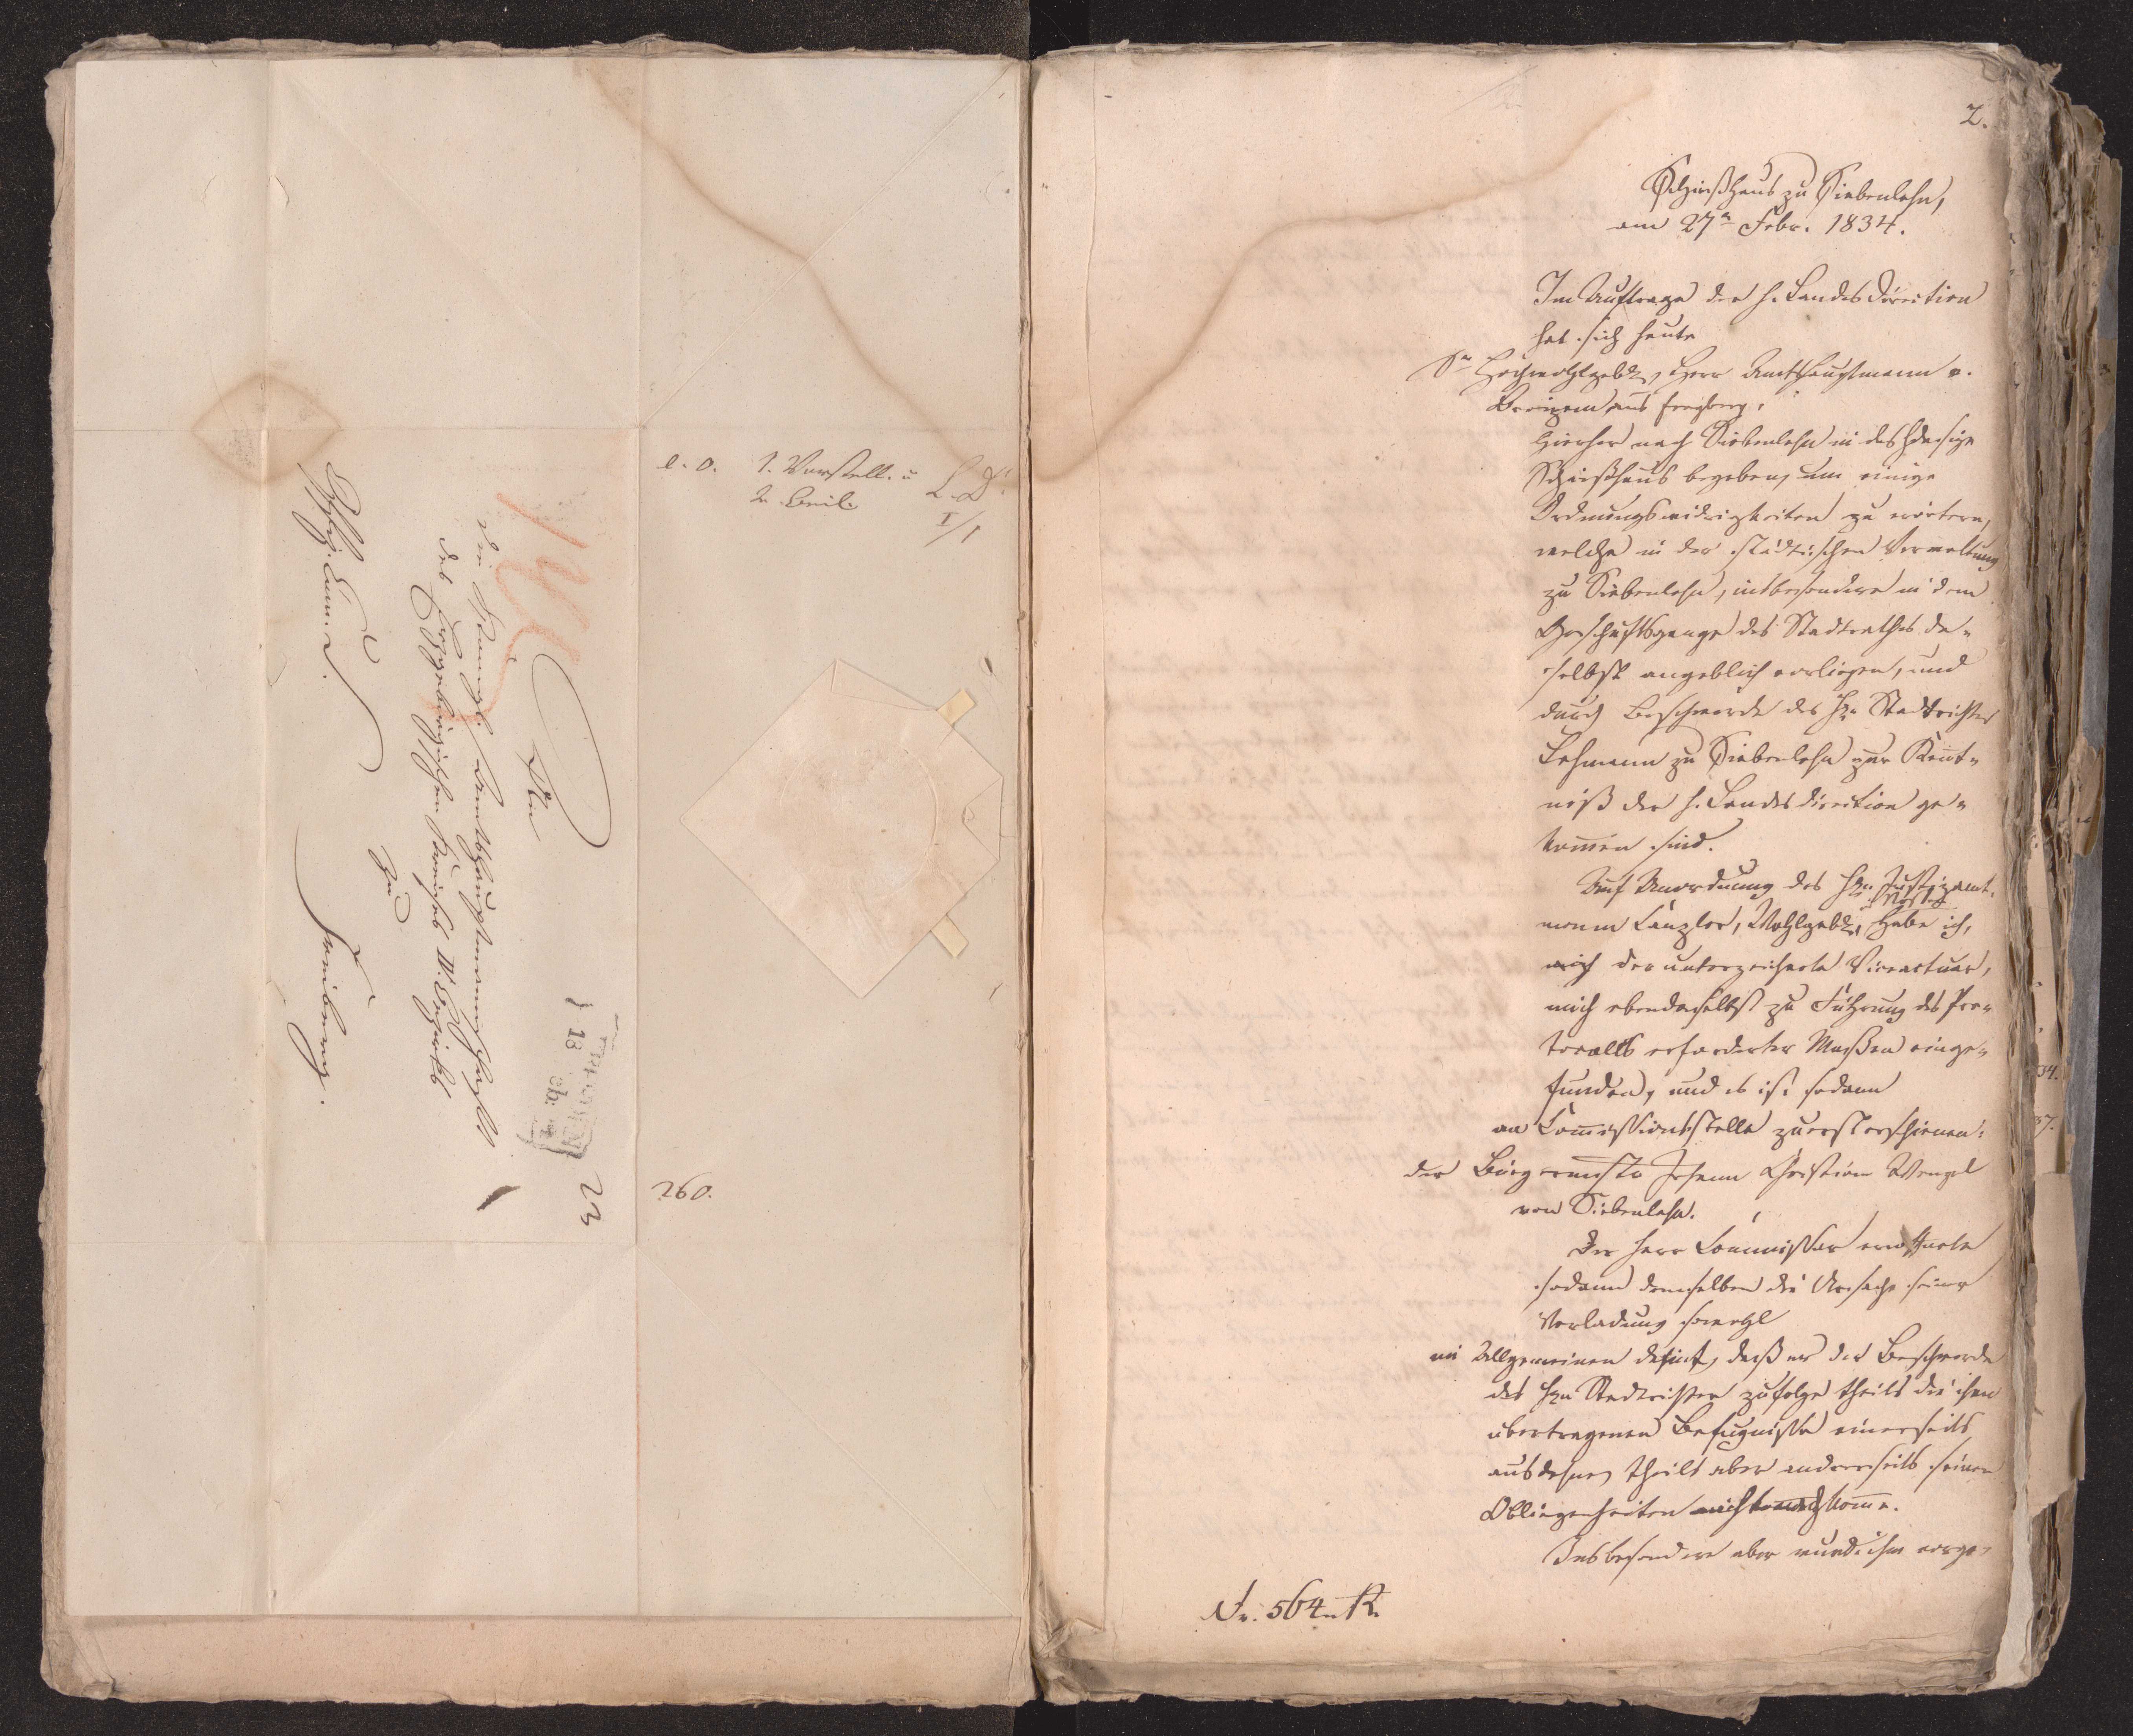 e. o. 1. Vorstell. u
2. Beil.
L. D.
I/1
260.
Den
die Königl. Amtshauptmannschaft
des Erzgebirgischen Kreises II. Bezirks
zu
Freiberg.
13
23
2.
Schießhaus zu Siebenlehn,
am 27n Febr. 1834.
Im Auftrage der h. Landes Direction
hat sich heute
Se Hochwohlgeb., Herr Amtshauptmann v.
aus Freyberg,
hierher nach Siebenlehn in das hiesige
Schießhaus begeben, um einige
Ordnungswidrigkeiten zu erörtern,
welche in der städtischen Verwaltung
zu Siebenlehn, insbesondere in dem
Geschäftsgange des Stadtrathes da-
selbst angeblich vorliegen, und
durch Beschwerde des Hrn Stadtrichter
Lehmann zu Siebenlehn zur Kent-
niß der h. Landesdirection ge-
kommen sind.
Auf Anordnung des Hrn Justizamt-
mann Canzler, Wohlgeb., habe ich,
der unterzeichnete Viceactuar,
mich ebendaselbst zu Führung des Pro-
tocolls erforderter Maßen einge-
funden, und es ist sodann
an Commissionsstelle zuerst erschienen:
der Bürgermstr Johann Christian Wenzel
von Siebenlehn.
Der Herr Commissar eröffnete
sodann demselben die Ursache seiner
Vorladung sowohl
im Allgemeinen dahin, daß er der Beschwerde
des Hrn Stadtrichter zufolge theils die ihm
übertragenen Befugnisse einerseits
ausdehne, theils aber andrerseits seinen
Obliegenheiten nicht nachkomme.
Insbesondere aber wurde ihm vorge-
Nr. 564. R.